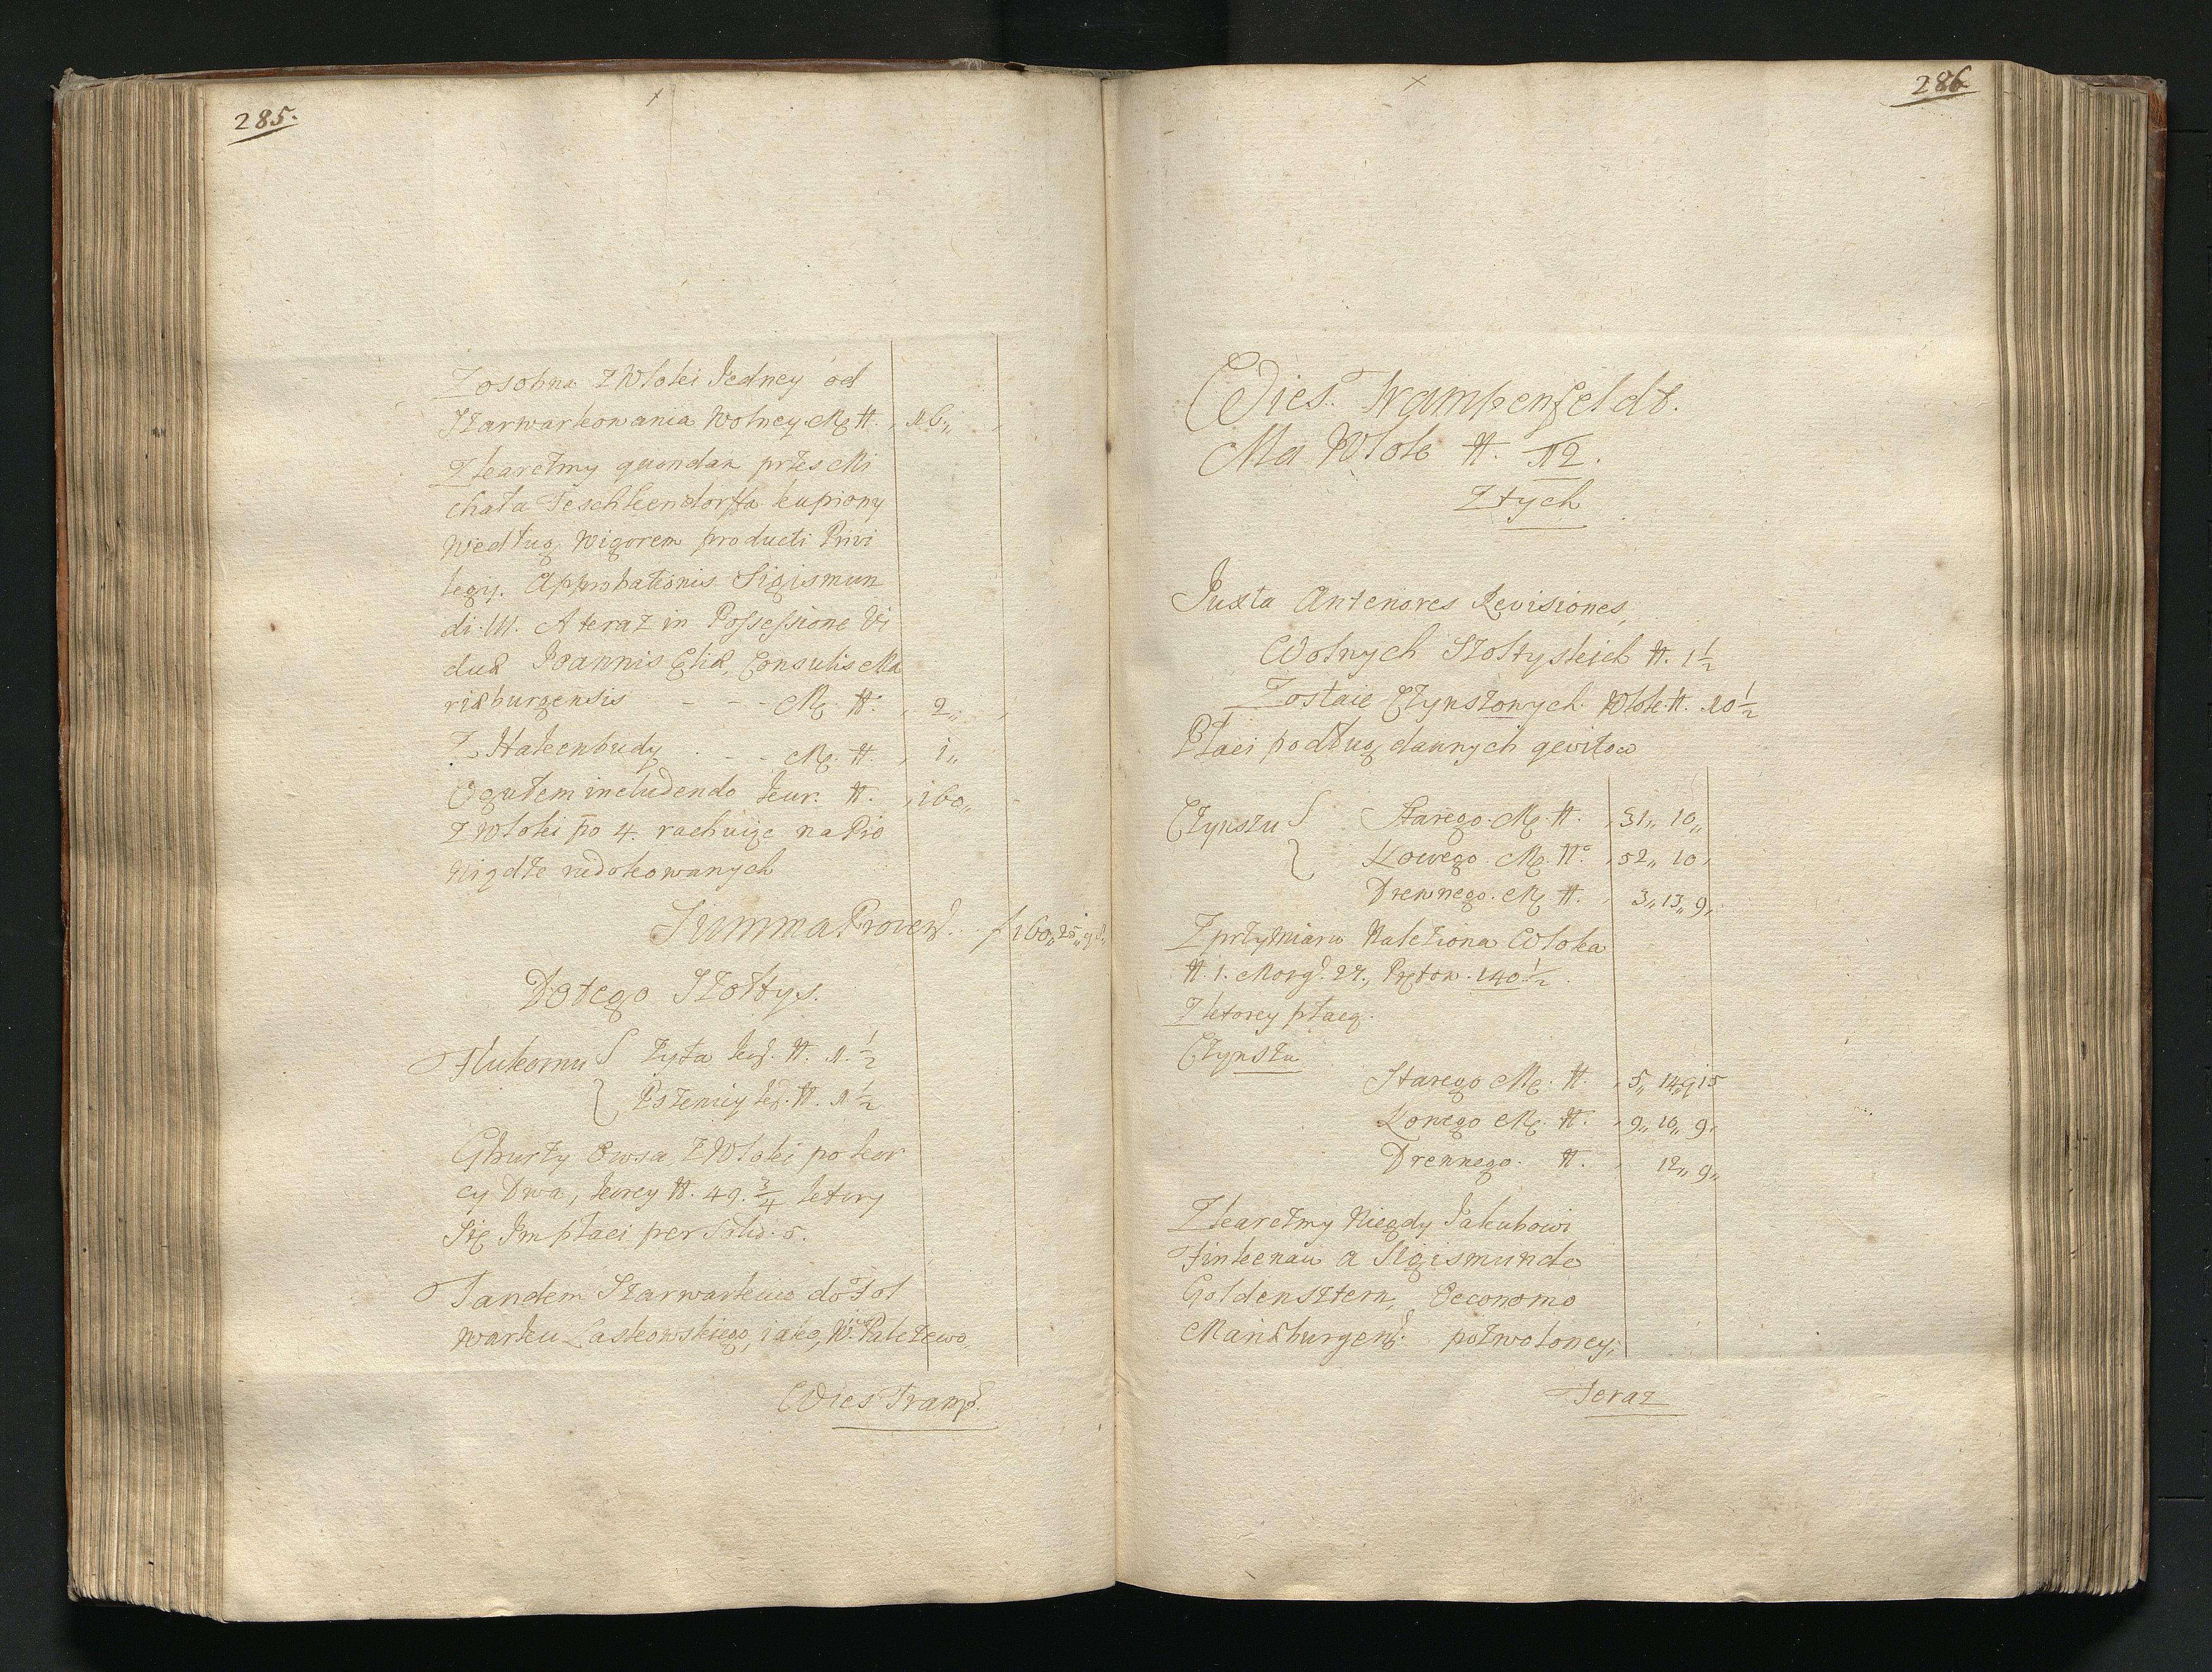 285.
Zosobna z Włoki Jedney od
Szarwarkowania Wolney Mg ₶. 16,,
Z karczmy quondam przes Mi
chała Teschkendorffa kupiony
według Wigorem producti Privi
legij. Approbationis Sigismun
di III. A teraz in Possessione Vi
duæ Joannis Consulis Ma
riæburgensis - - - Mg. ₶. 2,,
Z Hakenbudy - - Mg. ₶. 1,,
Ogułem includendo kur. ₶. 160,,
z Włoki po 4. rachuiąc na Pie
niądze redukowanych
Summa Provend. f 160,, 25,, 9
Do tego Szołtys.
Flukornu Zyta kor. ₶. 1. ½
Pszenicy kor. ₶. 1 ½
Ghurzy Owsa z Włoki po kor
cy Dwa, korcy ₶. 49. ¾ ktory
Się Im płaci per Solid. 5.
Tandem Szarwarkuią do Fol
warku Laskowskiego, iako, W. Palczewo.
Wies Tramp.
286
Wies Trampenfeldt.
Ma Włok ₶. 12.
Z tych
Juxta Anteriores Revisiones,
Wolnych Szołtyskich ₶. 1 ½
Zostaie Czynszowych Włok ₶. 10 ½
Płaci podług dannych qwitow
Czynszu Starego. Mg. ₶. 31,, 10,,
Nowego. Mg. ₶. 52,, 10,
Drewnego. Mg ₶. 3,, 13,, 9,
Z przymiaru Naleziona Włoka
₶. 1. Morg. 27., Prętow. 140 ½.
Z ktorey płacą.
Czynszu
Starego Mg. ₶. 5,, 14,, 9 15
Nowego Mg. ₶. 9,, 10,, 9,
Drewnego. ₶. 12,, 9,,
Z karczmy Niegdy Jakubowi
Finkenau a Sigismundo
Goldensztern, Oeconomo
Mariæburgens. pozwoloney,
Teraz